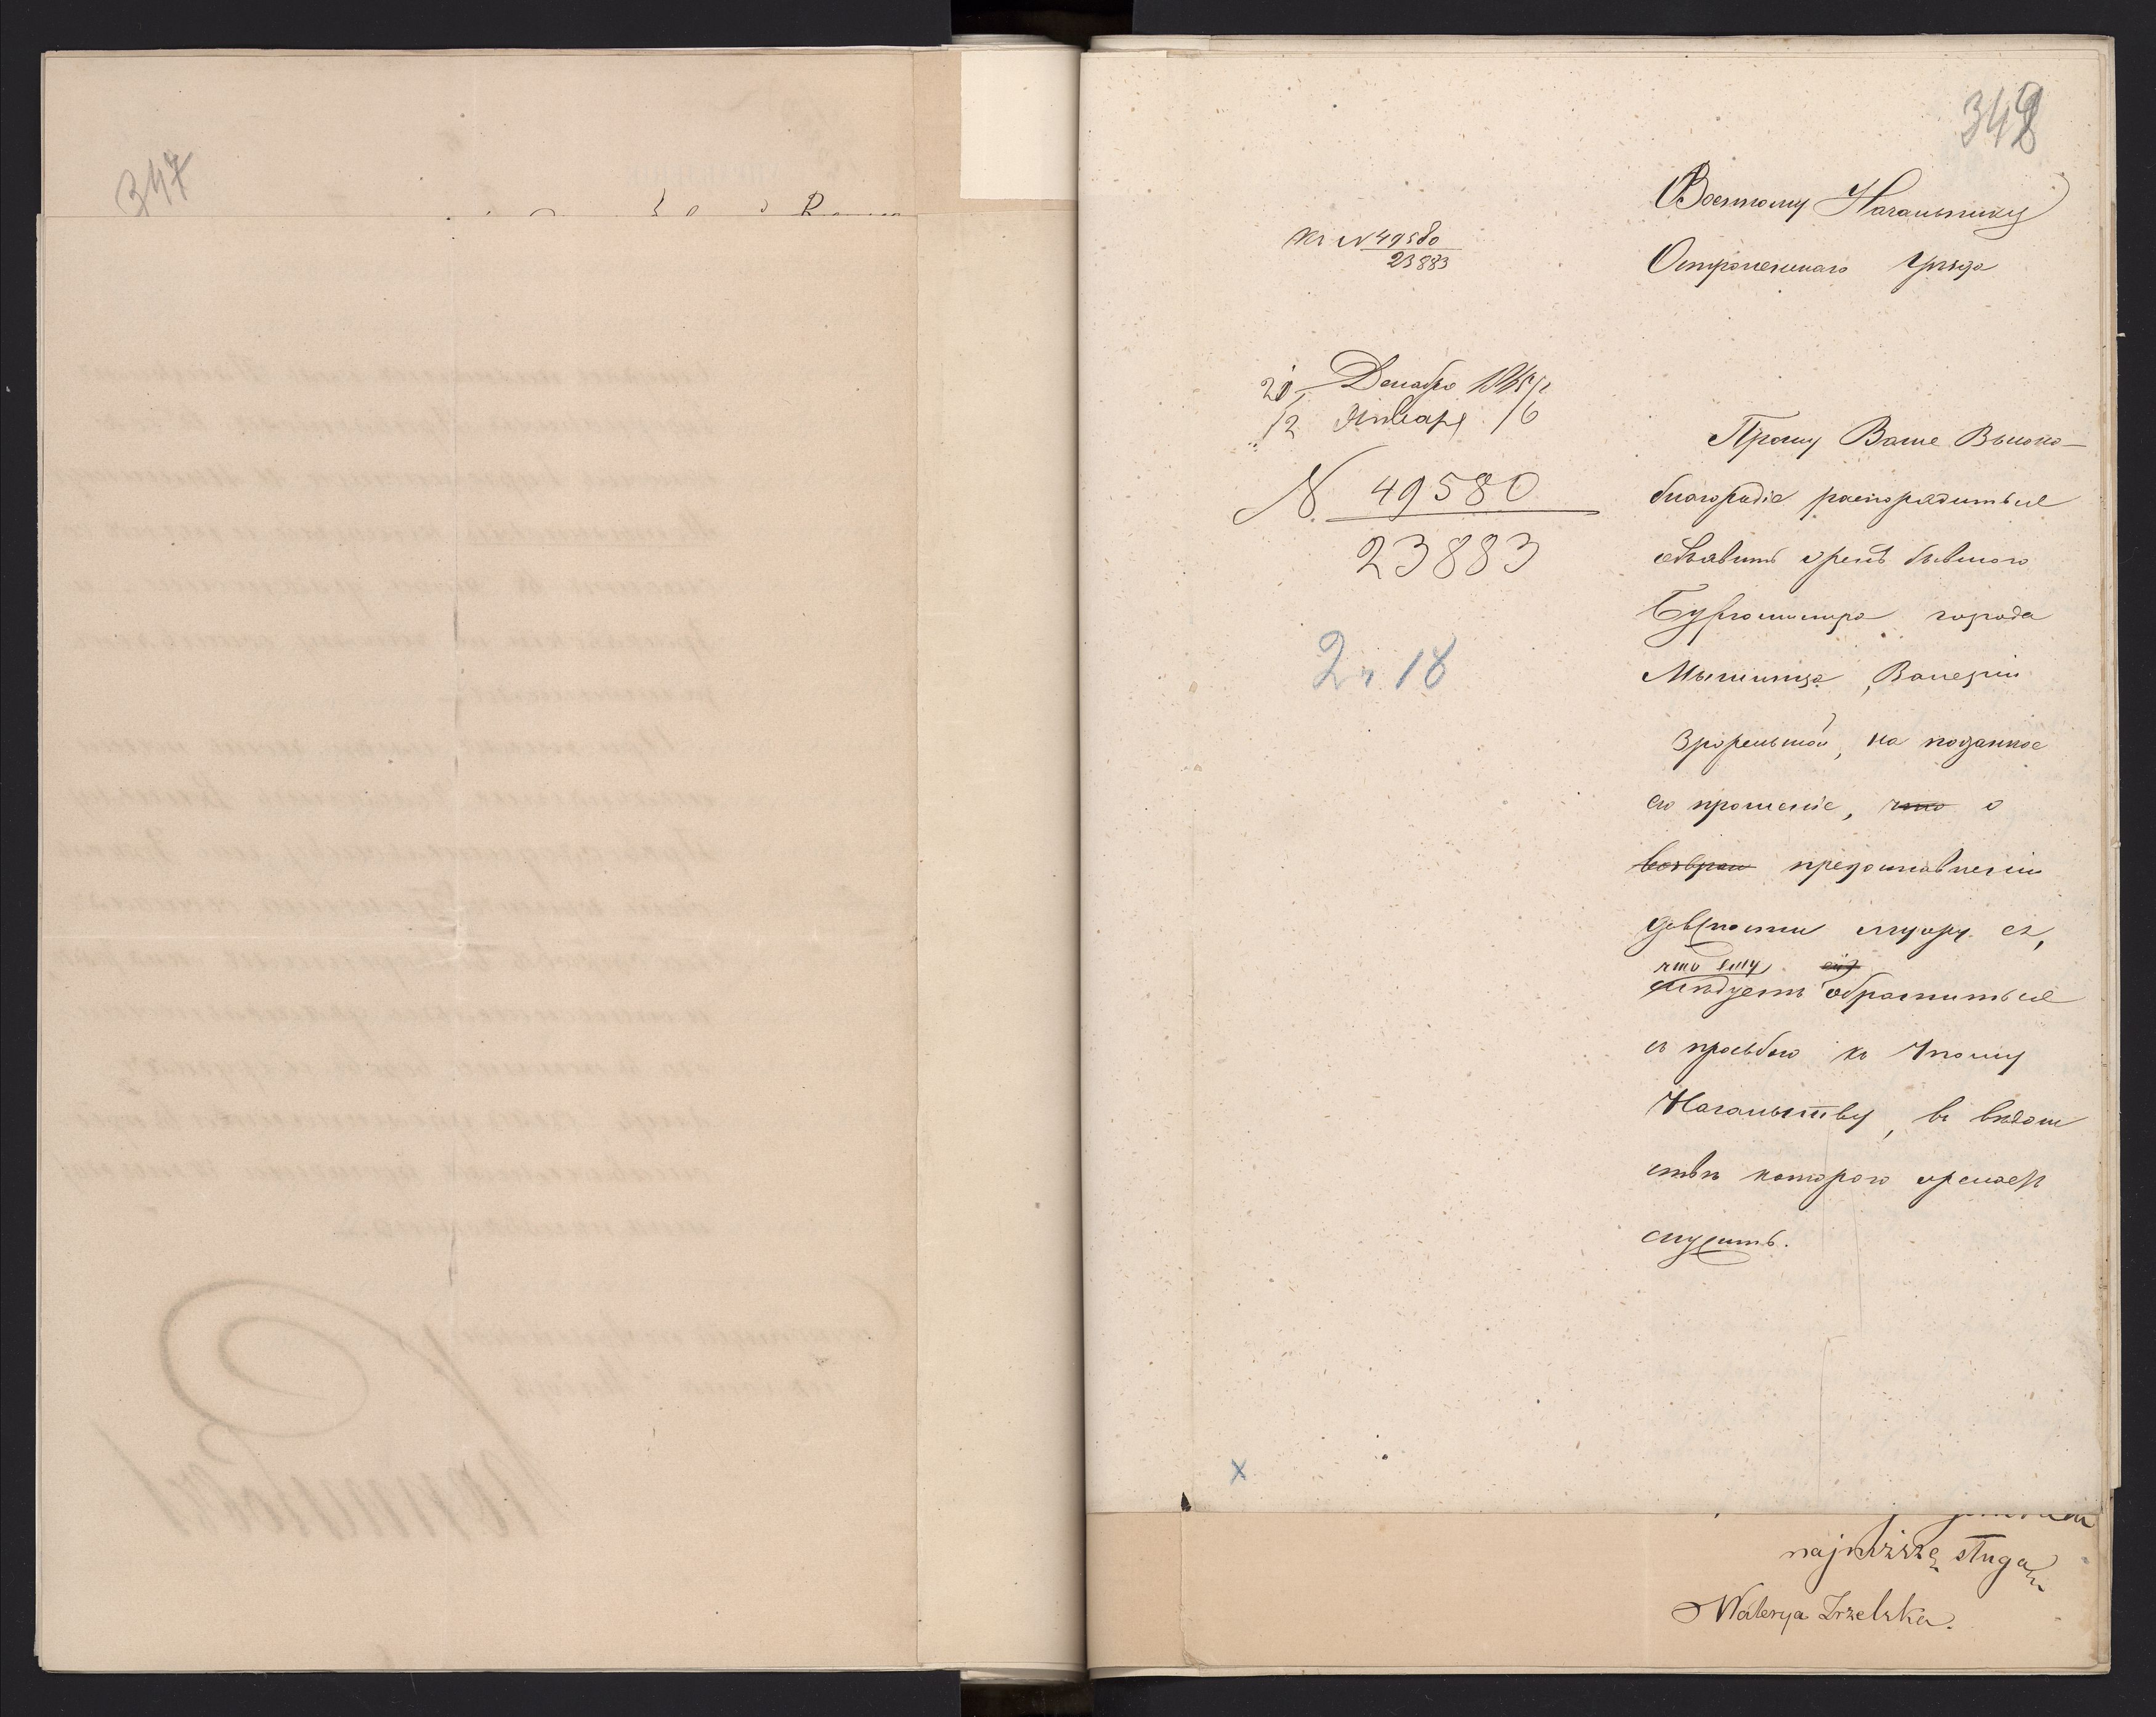 347
348
Военному Начальнику
Остроленскаго Уѣзда
Къ N 49580
23883
Декабря 1865 г.
12 Января /6
N 49580
23883
Прошу Ваше Высоко-
благородіе распорядиться
объявить женѣ бывшаго
Бургомистра города
Мышинца, Валеріи
на поданное
ею прошеніе, что о
возвращ предоставленіи
должности мужу ея,
что ему ей
слѣдуетъ обратиться
съ просьбою къ тому
Начальству, въ вѣдом
ствѣ котораго желаетъ
служить.
najniższą sługą
Walerya Zrzelska.